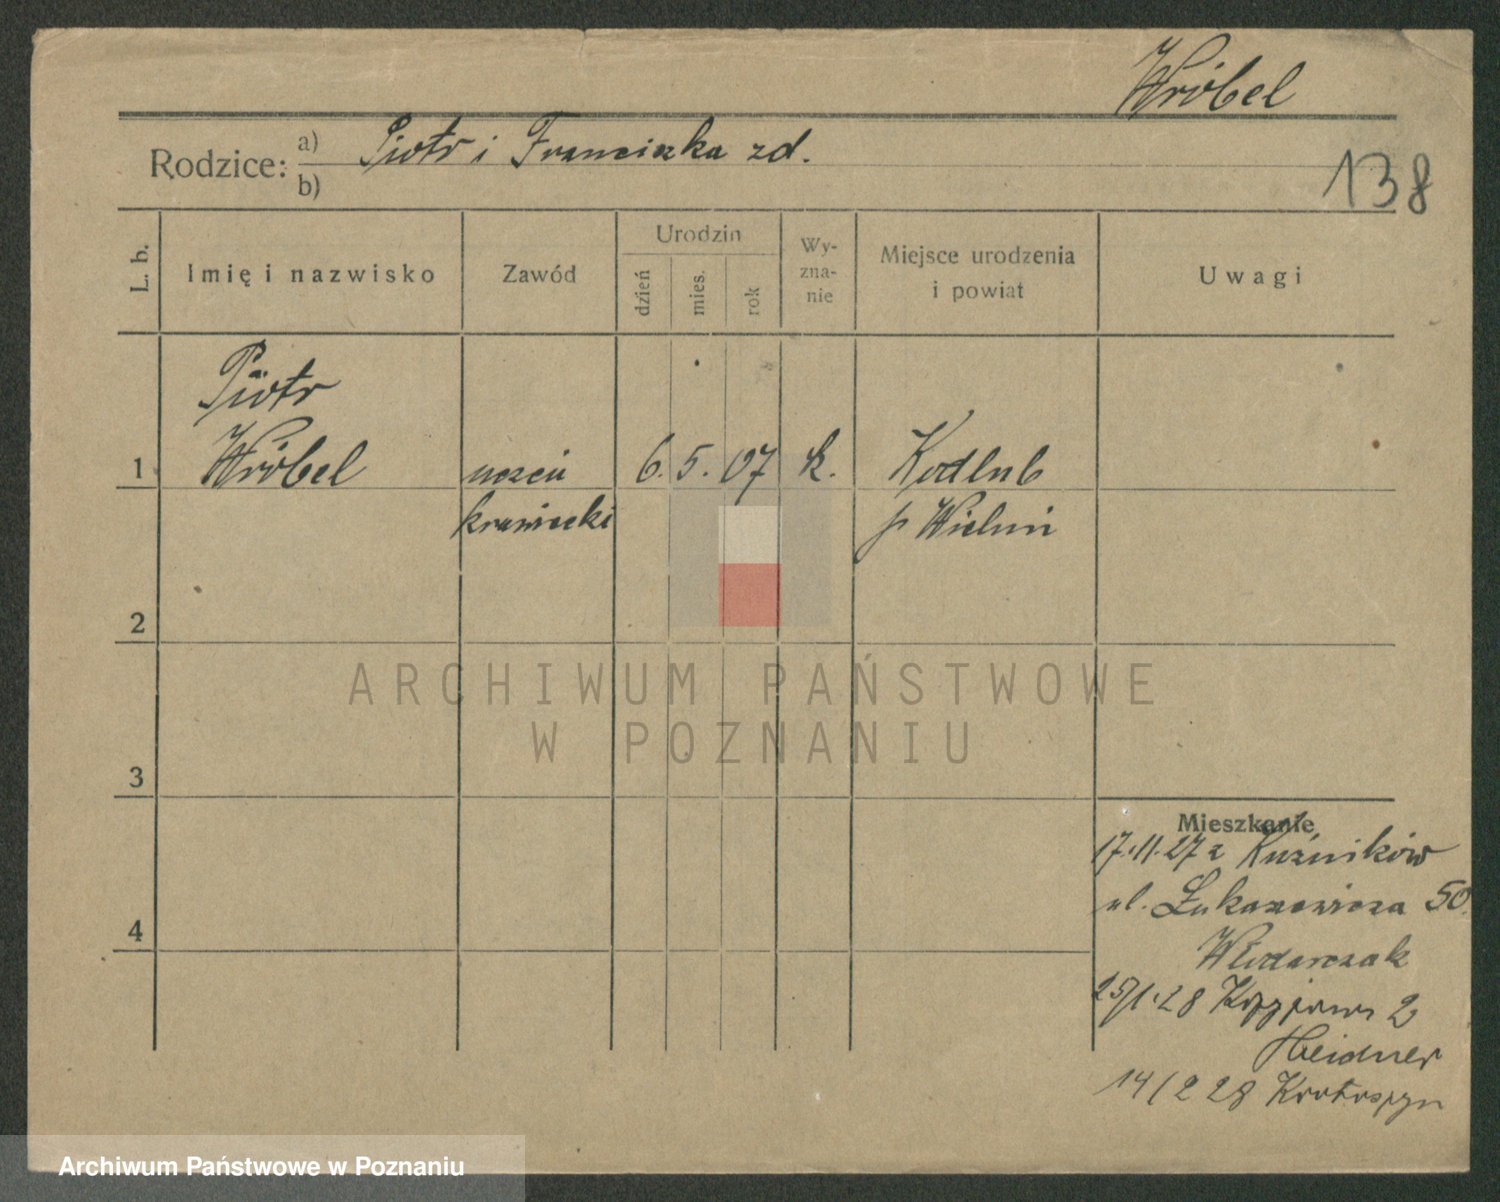 Wróbel
Rodzice: a) Piotr i Franciszka zd.
b)
138
L. b.
Imię i nazwisko
Zawód
Urodzin
dzień
mies.
rok
Wy-
zna-
nie
Miejsce urodzenia
i powiat
Uwagi
Piotr
1 Wróbel uczeń 6. 5. 07 k. Kodlub
krawiecki p Wieluń
2
ARCHIWUM PAŃSTWOWE
W POZNANIU
3
Mieszkanie
17.11.27 z Kuźników
ul. Łukaszewicza 50.
4
Włodarczak
25/1.28 2
Heidner
14/2 28 Krotoszyn
Archiwum Państwowe w Poznaniu